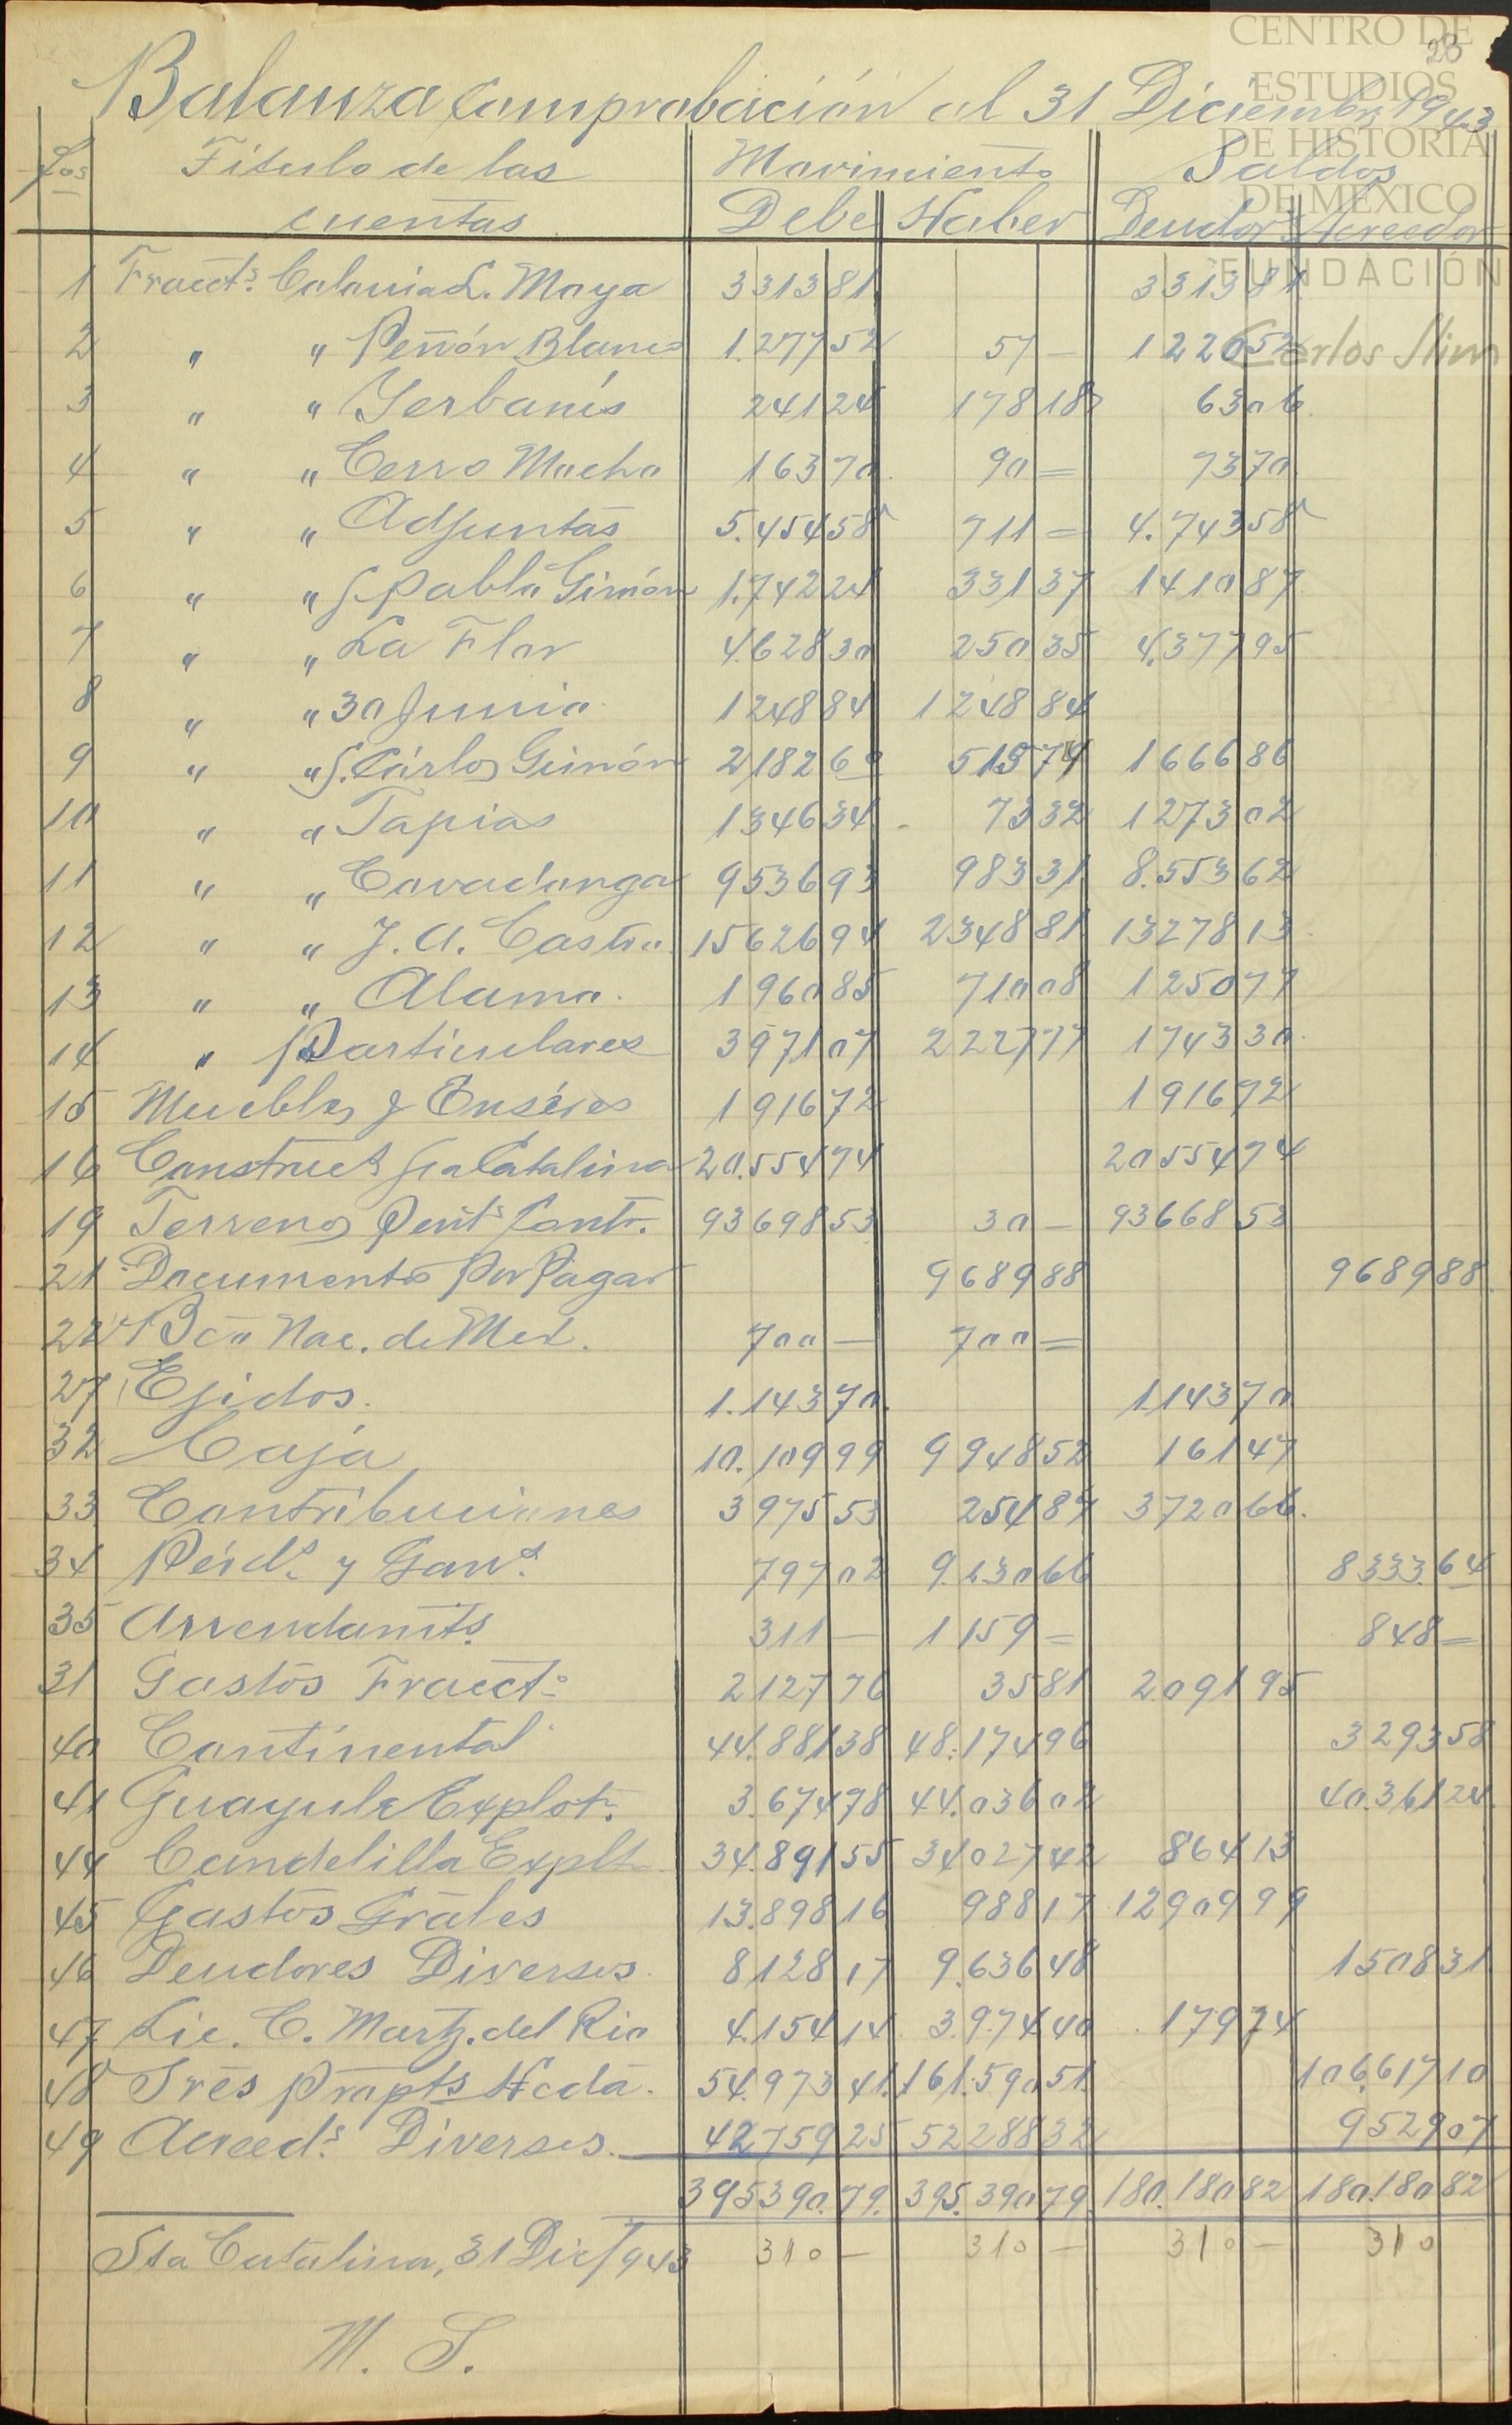 CENTRO DE
ESTUDIOS
DE HISTORIA
DE MEXICO
FUNDACIÓN
Carlos Slim
23
Balanza Comprobación al 31 Diciembre 1943
Fos Título de las Movimiento Saldos
cuentas Debe Haber Deudor Acreedor
1 Fracct.s Colonia L. Moya 3313 81 3313 81
2 " " Peñón Blanco 1.277 52 57 — 1220 52
3 " " Yerbanís 241 24 178 18 63 06
4 " " Cerro Macho 163 70 90 = 73 70
5 " " Adjuntas 5.454 58 711 = 4.743 58
6 " " S. Pablo Gimón 1.742 24 331 37 1410 87
7 " " La Flor 4.628 30 250 35 4.377 95
8 " " 30 Junio 1248 84 1248 84
9 " " S. Cárlos Gimón 2182 60 515 74 1666 86
10 " " Tapias 1346 34 73 32 1273 02
11 " " Covadonga 9536 93 983 31 8.553 62
12 " " J. A. Castro 15626 94 2348 81 13278 13
13 " " Alamo 1960 85 710 08 1250 77
14 " Particulares 3971 07 2227 77 1743 30
15 Muebles y Enséres 1916 72 1916 72
16 Construct Sta Catalina 20.554 74 20554 74
19 Terrenos Pent.s Contr. 93698 53 30 — 93668 53
21 Documentos Por Pagar 9689 88 9689 88
22 Bco Nac. de Mex. 700 — 700 =
27 Ejidos. 1.143 70 1143 70
32 Caja 10.109 99 9948 52 161 47
33 Contribuciones 3975 53 254 87 3720 66
34 Pérd.s y Gan.s 797 02 9.130 66 8333.64
35 Arrendamts. 311 — 1159 = 848 =
31 Gastos Fracct.s 2127 76 35 81 2091 95
40 Continental 44.881 38 48.174 96 3293 58
41 Guayule Explot. 3.674 78 44.036 02 40.361 24
44 Candelilla Explt 34.891 55 34027 42 864 13
45 Gastos Gráles 13.898 16 988 17 12909 99
46 Deudores Diversos 8128 17 9.636 48 1508 31
47 Lic. C. Martz. del Rio 4.154 14 3.974 40 179 74
48 Tres Propts Hcda. 54.973 41 161.590 51 106.617 10
49 Acreed.s Diversos. 42759 25 52288 32 9529 07
395390.79 395.390 79 180.180 82 180.180 82
Sta Catalina, 31 Dic/943 310 — 310 — 310 — 310
M. S.